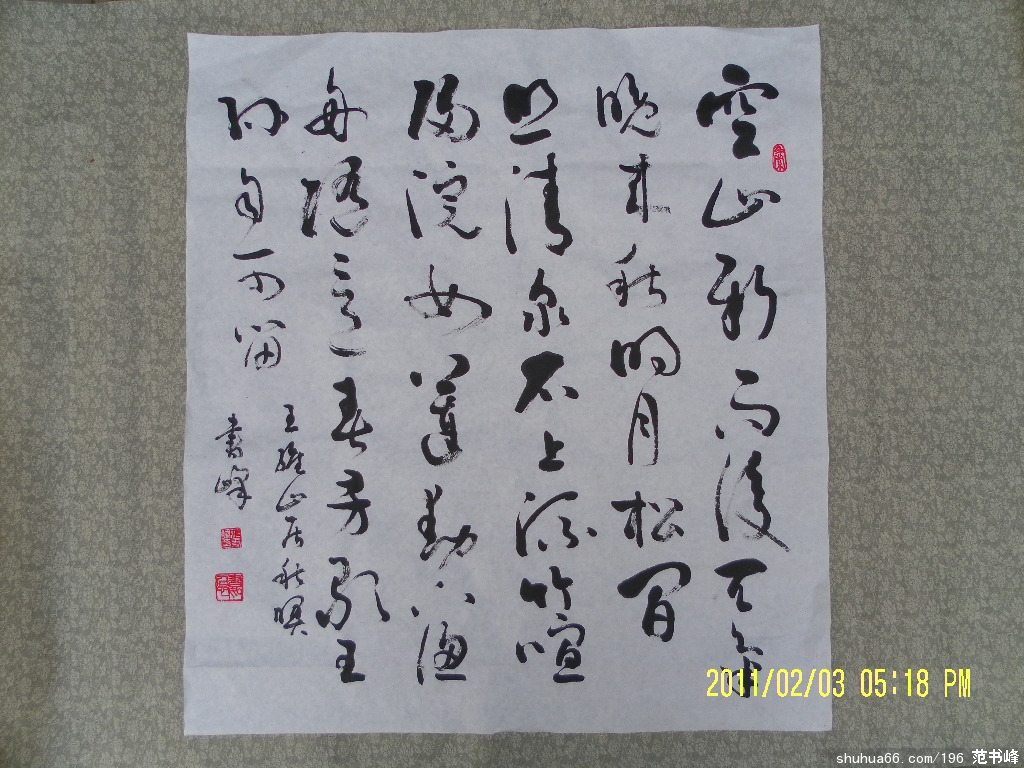 空山新雨後天氣
晚來秋明月松間
照清泉石上流竹喧
歸浣女蓮動下漁
舟隨意春芳歇王
孫自可留
王維山居秋暝
書峰
2011/02/03 05:18 PM
shuhua66.com/196 范书峰